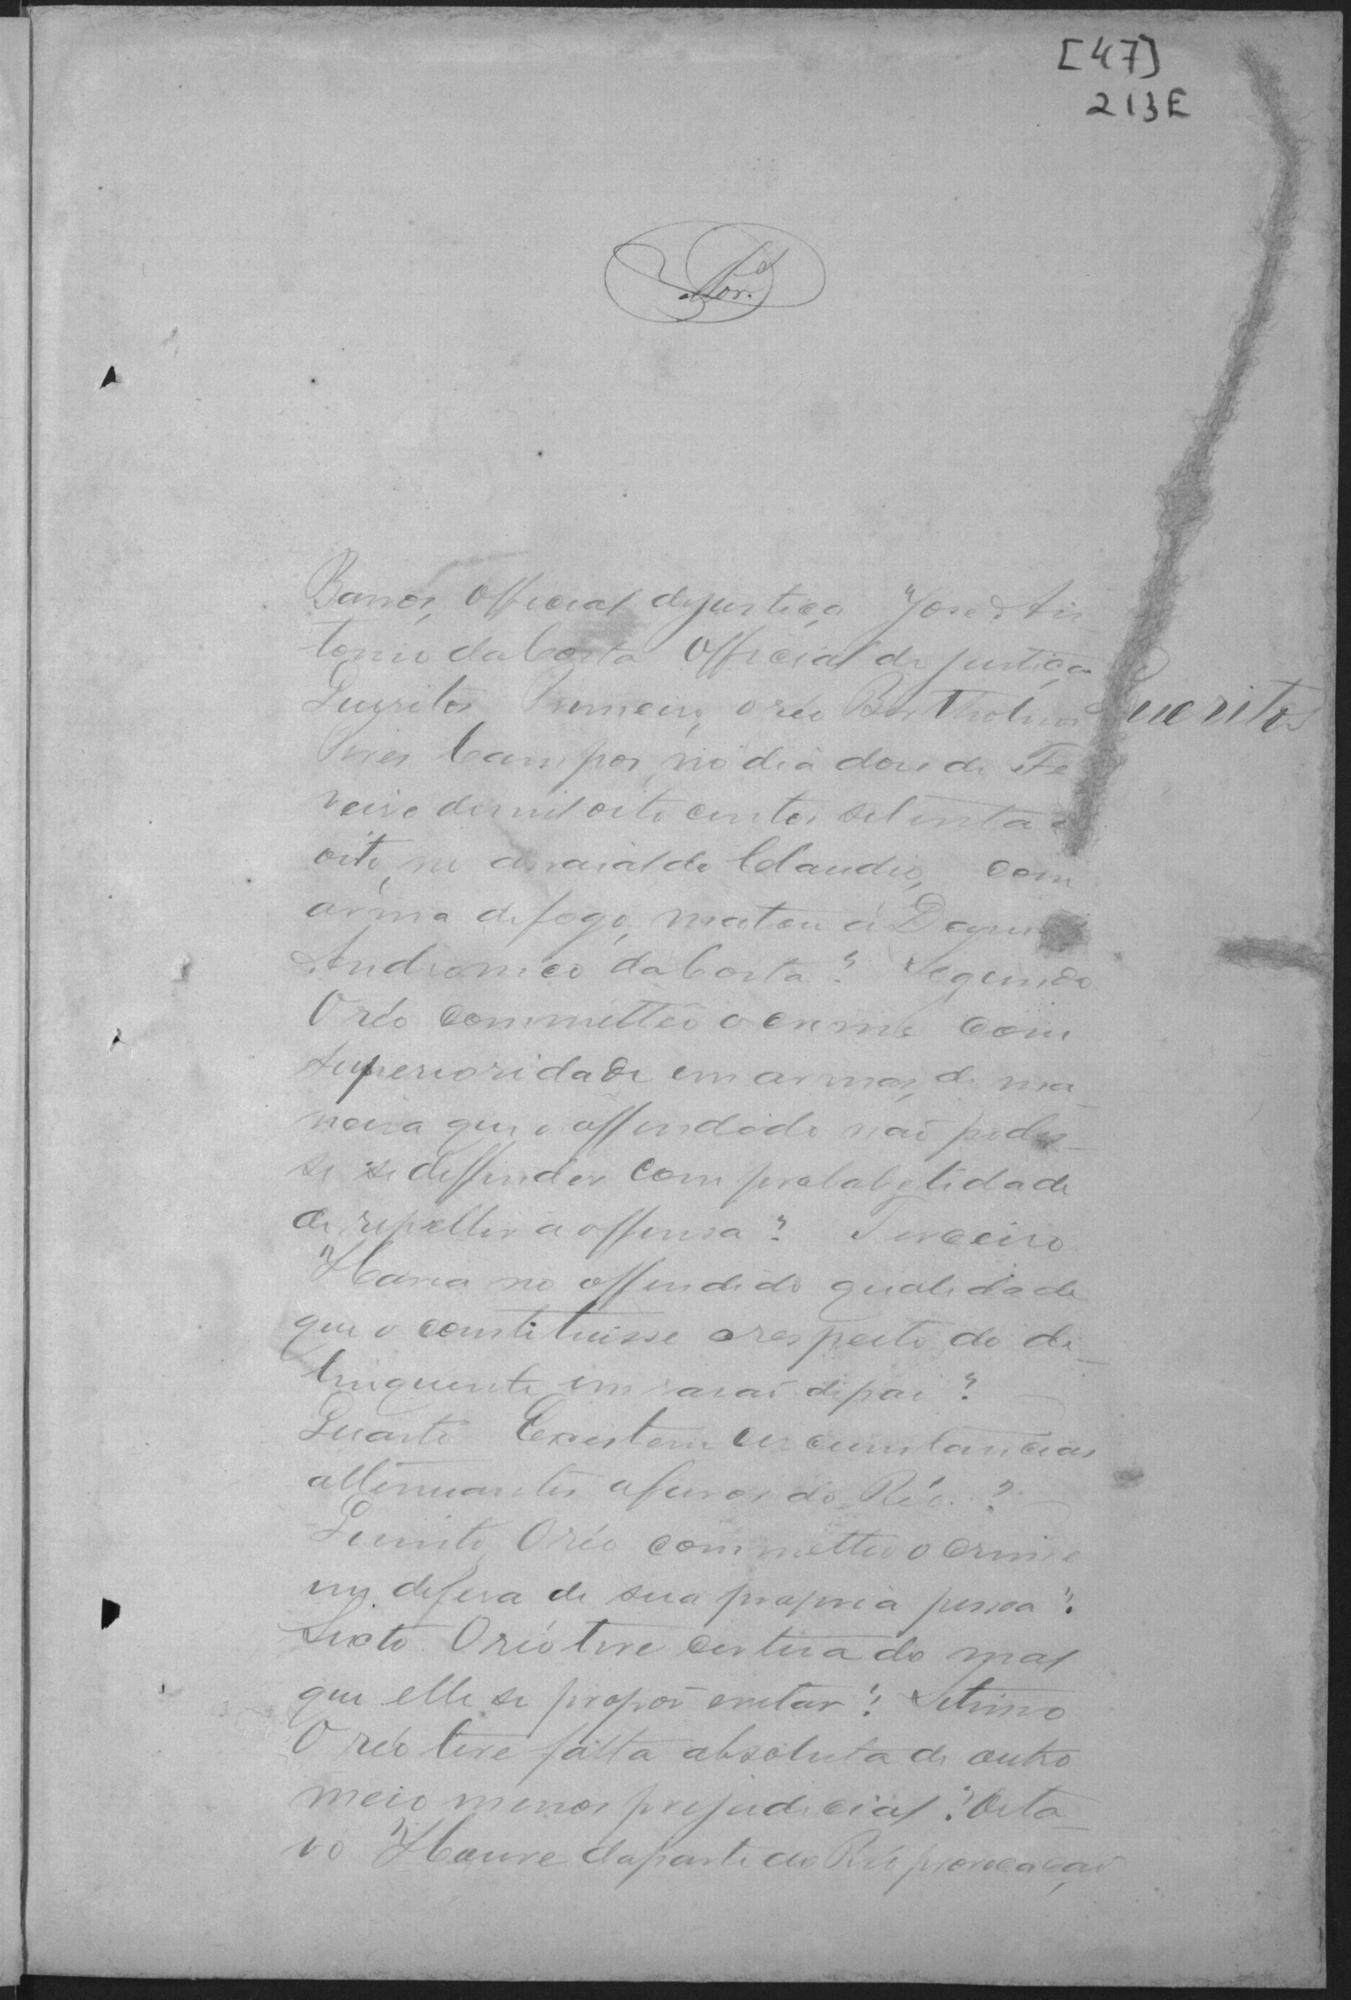 [47]
213E
Barros, Official dejustiça, José An
tonio daCosta Official de justiça
Quezitos Primeiro, o réo Bartholmeo
Quezitos
Pires Campos, no dia dose de Fe
vereiro demil oito centos setenta e
oito, no arraial do Claudio, com
arma defogo, matou a
Andronico daCosta? Segundo
O réo commetteo o crime com
superioridade em armas, de ma
neira que o offendido não podes
se se deffender com probabelidade
de repellir a offensa? Terceiro
Havia no offendido qualidade
que o constituisse arespeito do de
linquente em rasaõ depai?
Quarto Existem circumstancias
attenuantes afavor do Réo?
Quinto O réo commetteo o crime
em defesa de sua propria pessoa?
Sexto O réo teve certesa do mal
que elle se propos evitar? Setimo
O réo teve falta absoluta de outro
meio menos prejudicial? Oita
vo Houve daparte do Réo provocaçaõ